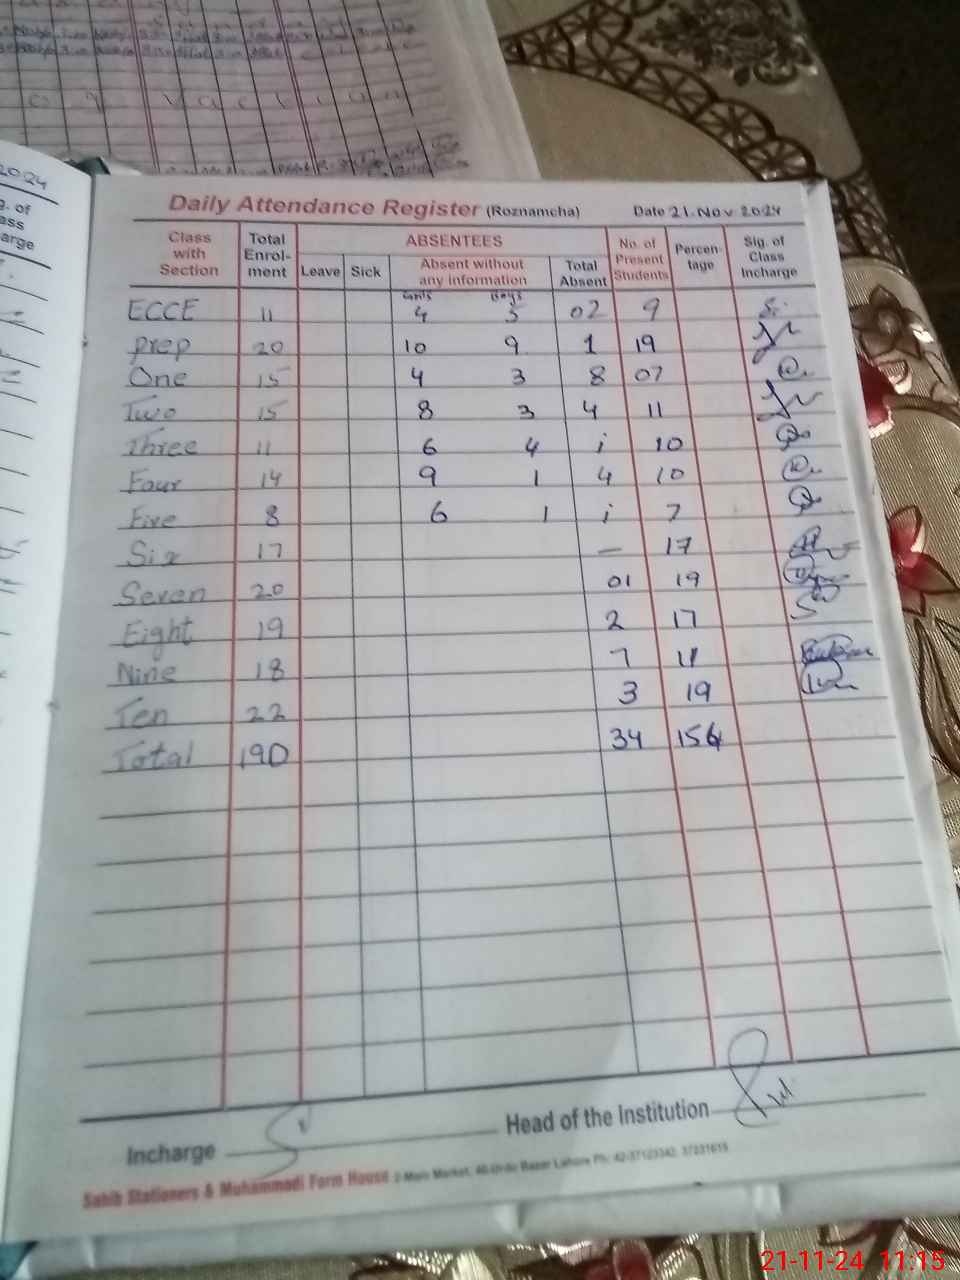 2024
g. of
ass
arge
Daily Attendance Register (Roznamcha) Date 21. Nov 2024
Class with Section Total Enrol-ment ABSENTEES No. of Present Students Percen-tage Sig. of Class Incharge
Leave Sick Absent without any information Total Absent
Girls Boys
ECCE 11 4 5 02 9
prep 20 10 9 1 19
One 15 4 3 8 07
Two 15 8 3 4 11
Three 11 6 4 i 10
Four 14 9 1 4 10
Five 8 6 1 i 7
Six 17 — 17
Seven 20 01 19
Eight 19 2 17
Nine 18 7 11
Ten 22 3 19
Total 190 34 156
Incharge Head of the Institution
Sahib Stationers & Muhammadi Form House 2-Main Market, 40-Urdu Bazar Lahore Ph: 42-37123342, 37231615
21-11-24 11:15